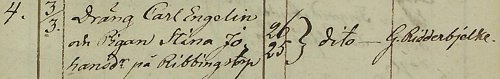 4. 3/3. Dräng Carl Engelin
och Pigan Stina Jo- 26
hansdr på Ribbingstorp 25 } dito — G. Ridderbjelke.